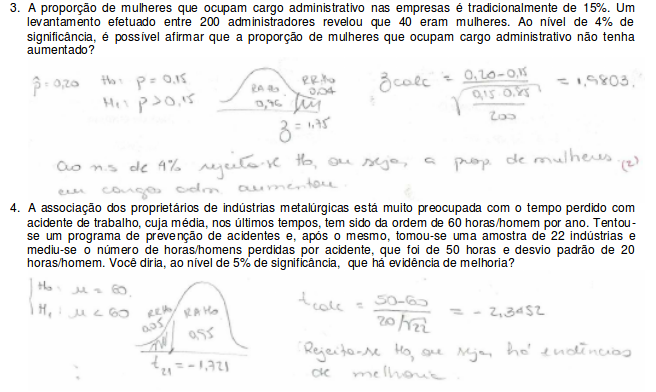 3. A proporção de mulheres que ocupam cargo administrativo nas empresas é tradicionalmente de 15%. Um
levantamento efetuado entre 200 administradores revelou que 40 eram mulheres. Ao nível de 4% de
significância, é possível afirmar que a proporção de mulheres que ocupam cargo administrativo não tenha
aumentado?
p̂=0,20 H₀: p = 0,15 RRH₀ zcalc = 0,20-0,15 / √(0,15 . 0,85 / 200) = 1,9803.
H₁: p > 0,15 RAH₀ 0,04
0,96
z = 1,75
ao n.s de 4% rejeita-se H₀, ou seja, a prop de mulheres (2)
em cargos adm aumentou.
4. A associação dos proprietários de indústrias metalúrgicas está muito preocupada com o tempo perdido com
acidente de trabalho, cuja média, nos últimos tempos, tem sido da ordem de 60 horas/homem por ano. Tentou-
se um programa de prevenção de acidentes e, após o mesmo, tomou-se uma amostra de 22 indústrias e
mediu-se o número de horas/homens perdidas por acidente, que foi de 50 horas e desvio padrão de 20
horas/homem. Você diria, ao nível de 5% de significância, que há evidência de melhoria?
H₀: μ = 60. tcalc = 50-60 / 20/√22 = - 2,3452
H₁: μ < 60 RRH₀ RAH₀
0,05 0,95
t₂₁ = -1,721
Rejeita-se H₀, ou seja, há evidências
de melhoria.